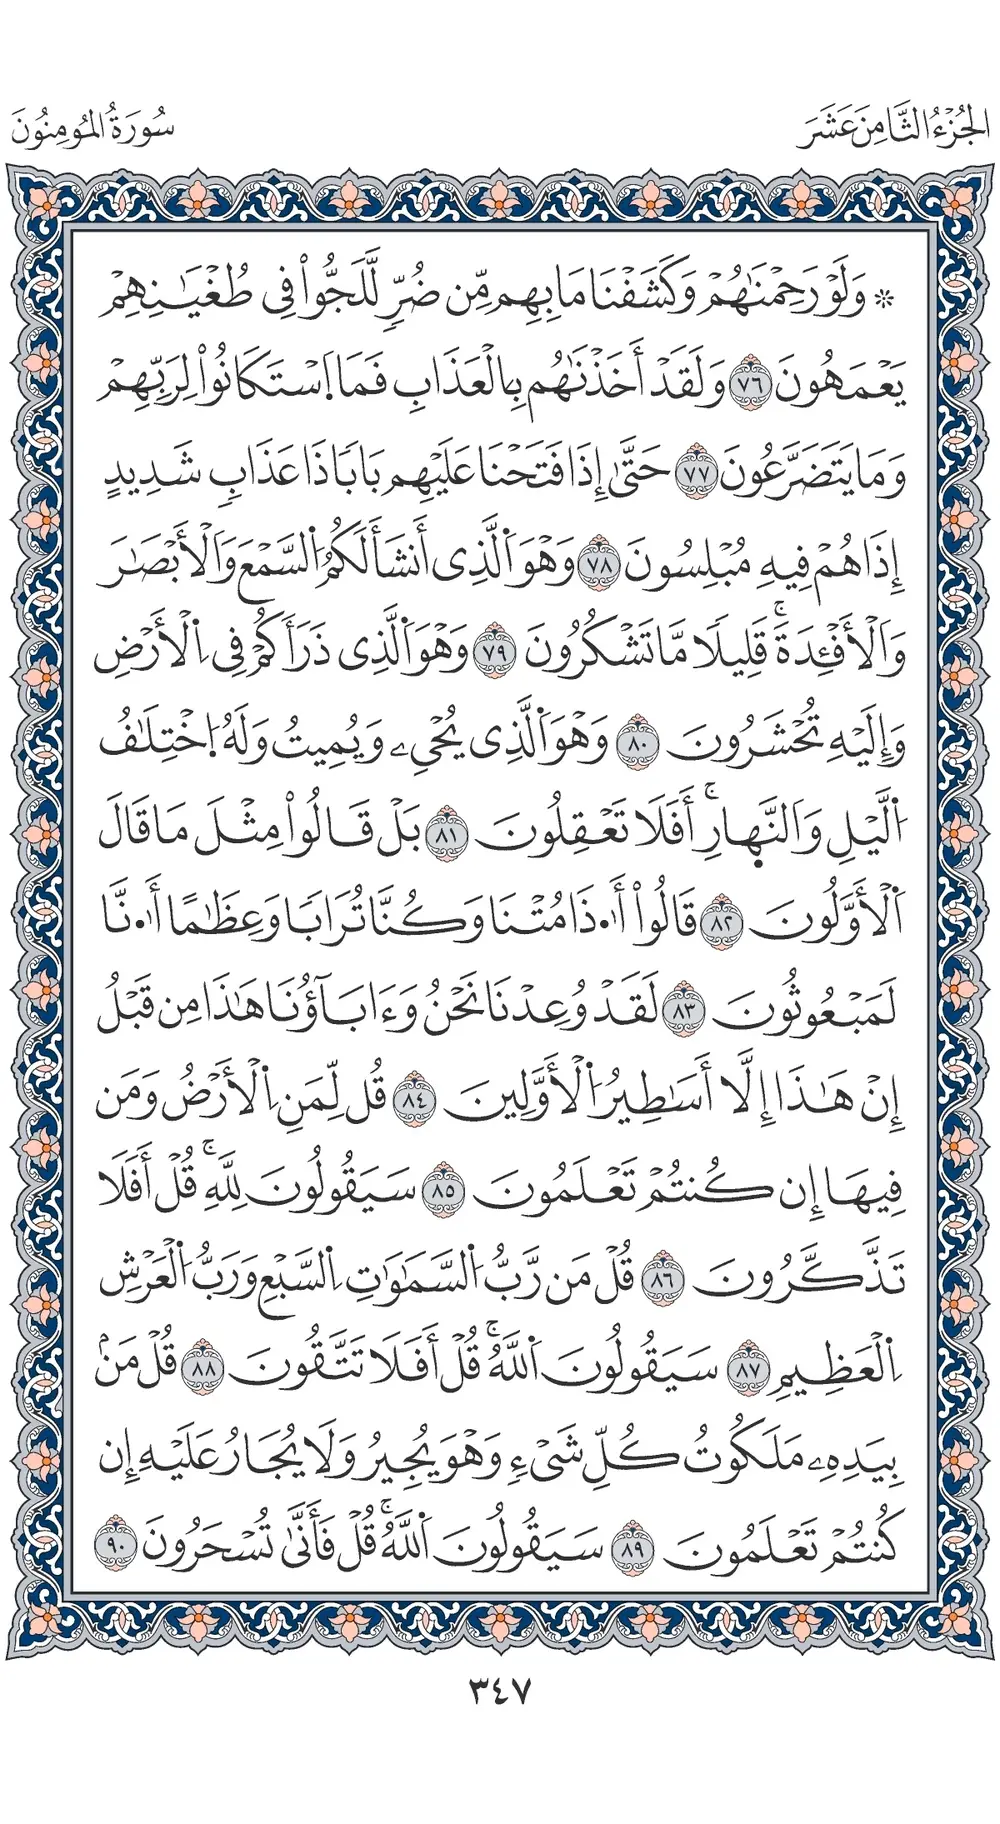 الجُزْءُ الثَّامِنَ عَشَرَ
سُورَةُ المُومِنُونَ
۞ وَلَوْ رَحِمْنَٰهُمْ وَكَشَفْنَا مَا بِهِم مِّن ضُرّٖ لَّلَجُّواْ فِي طُغْيَٰنِهِمْ
يَعْمَهُونَ ٧٦ وَلَقَدْ أَخَذْنَٰهُم بِالْعَذَابِ فَمَا اَ۪سْتَكَانُواْ لِرَبِّهِمْ
وَمَا يَتَضَرَّعُونَ ٧٧ حَتَّىٰ إِذَا فَتَحْنَا عَلَيْهِم بَابٗا ذَا عَذَابٖ شَدِيدٍ
إِذَا هُمْ فِيهِ مُبْلِسُونَ ٧٨ وَهْوَ اَ۬لَّذِي أَنشَأَ لَكُمُ اُ۬لسَّمْعَ وَالْأَبْصَٰرَ
وَالْأَفْـِٕدَةَۚ قَلِيلٗا مَّا تَشْكُرُونَ ٧٩ وَهْوَ اَ۬لَّذِي ذَرَأَكُمْ فِي اِ۬لْأَرْضِ
وَإِلَيْهِ تُحْشَرُونَ ٨٠ وَهْوَ اَ۬لَّذِي يُحْيِۦ وَيُمِيتُ وَلَهُ اُ۪خْتِلَٰفُ
اُ۬لَّيْلِ وَالنَّه۪ارِۚ أَفَلَا تَعْقِلُونَ ٨١ بَلْ قَالُواْ مِثْلَ مَا قَالَ
اَ۬لْأَوَّلُونَ ٨٢ قَالُواْ أَا۟ذَا مُتْنَا وَكُنَّا تُرَابٗا وَعِظَٰمًا أَا۟نَّا
لَمَبْعُوثُونَ ٨٣ لَقَدْ وُعِدْنَا نَحْنُ وَءَابَآؤُنَا هَٰذَا مِن قَبْلُ
إِنْ هَٰذَا إِلَّا أَسَٰطِيرُ اُ۬لْأَوَّلِينَ ٨٤ قُل لِّمَنِ اِ۬لْأَرْضُ وَمَن
فِيهَا إِن كُنتُمْ تَعْلَمُونَ ٨٥ سَيَقُولُونَ لِلَّهِۚ قُلْ أَفَلَا
تَذَّكَّرُونَ ٨٦ قُلْ مَن رَّبُّ اُ۬لسَّمَٰوَٰتِ اِ۬لسَّبْعِ وَرَبُّ اُ۬لْعَرْشِ
اِ۬لْعَظِيمِ ٨٧ سَيَقُولُونَ اَ۬للَّهُۚ قُلْ أَفَلَا تَتَّقُونَ ٨٨ قُلْ مَنۢ
بِيَدِهِۦ مَلَكُوتُ كُلِّ شَيْءٖ وَهْوَ يُجِيرُ وَلَا يُجَارُ عَلَيْهِ إِن
كُنتُمْ تَعْلَمُونَ ٨٩ سَيَقُولُونَ اَ۬للَّهُۚ قُلْ فَأَنَّىٰ تُسْحَرُونَ ٩٠
٣٤٧